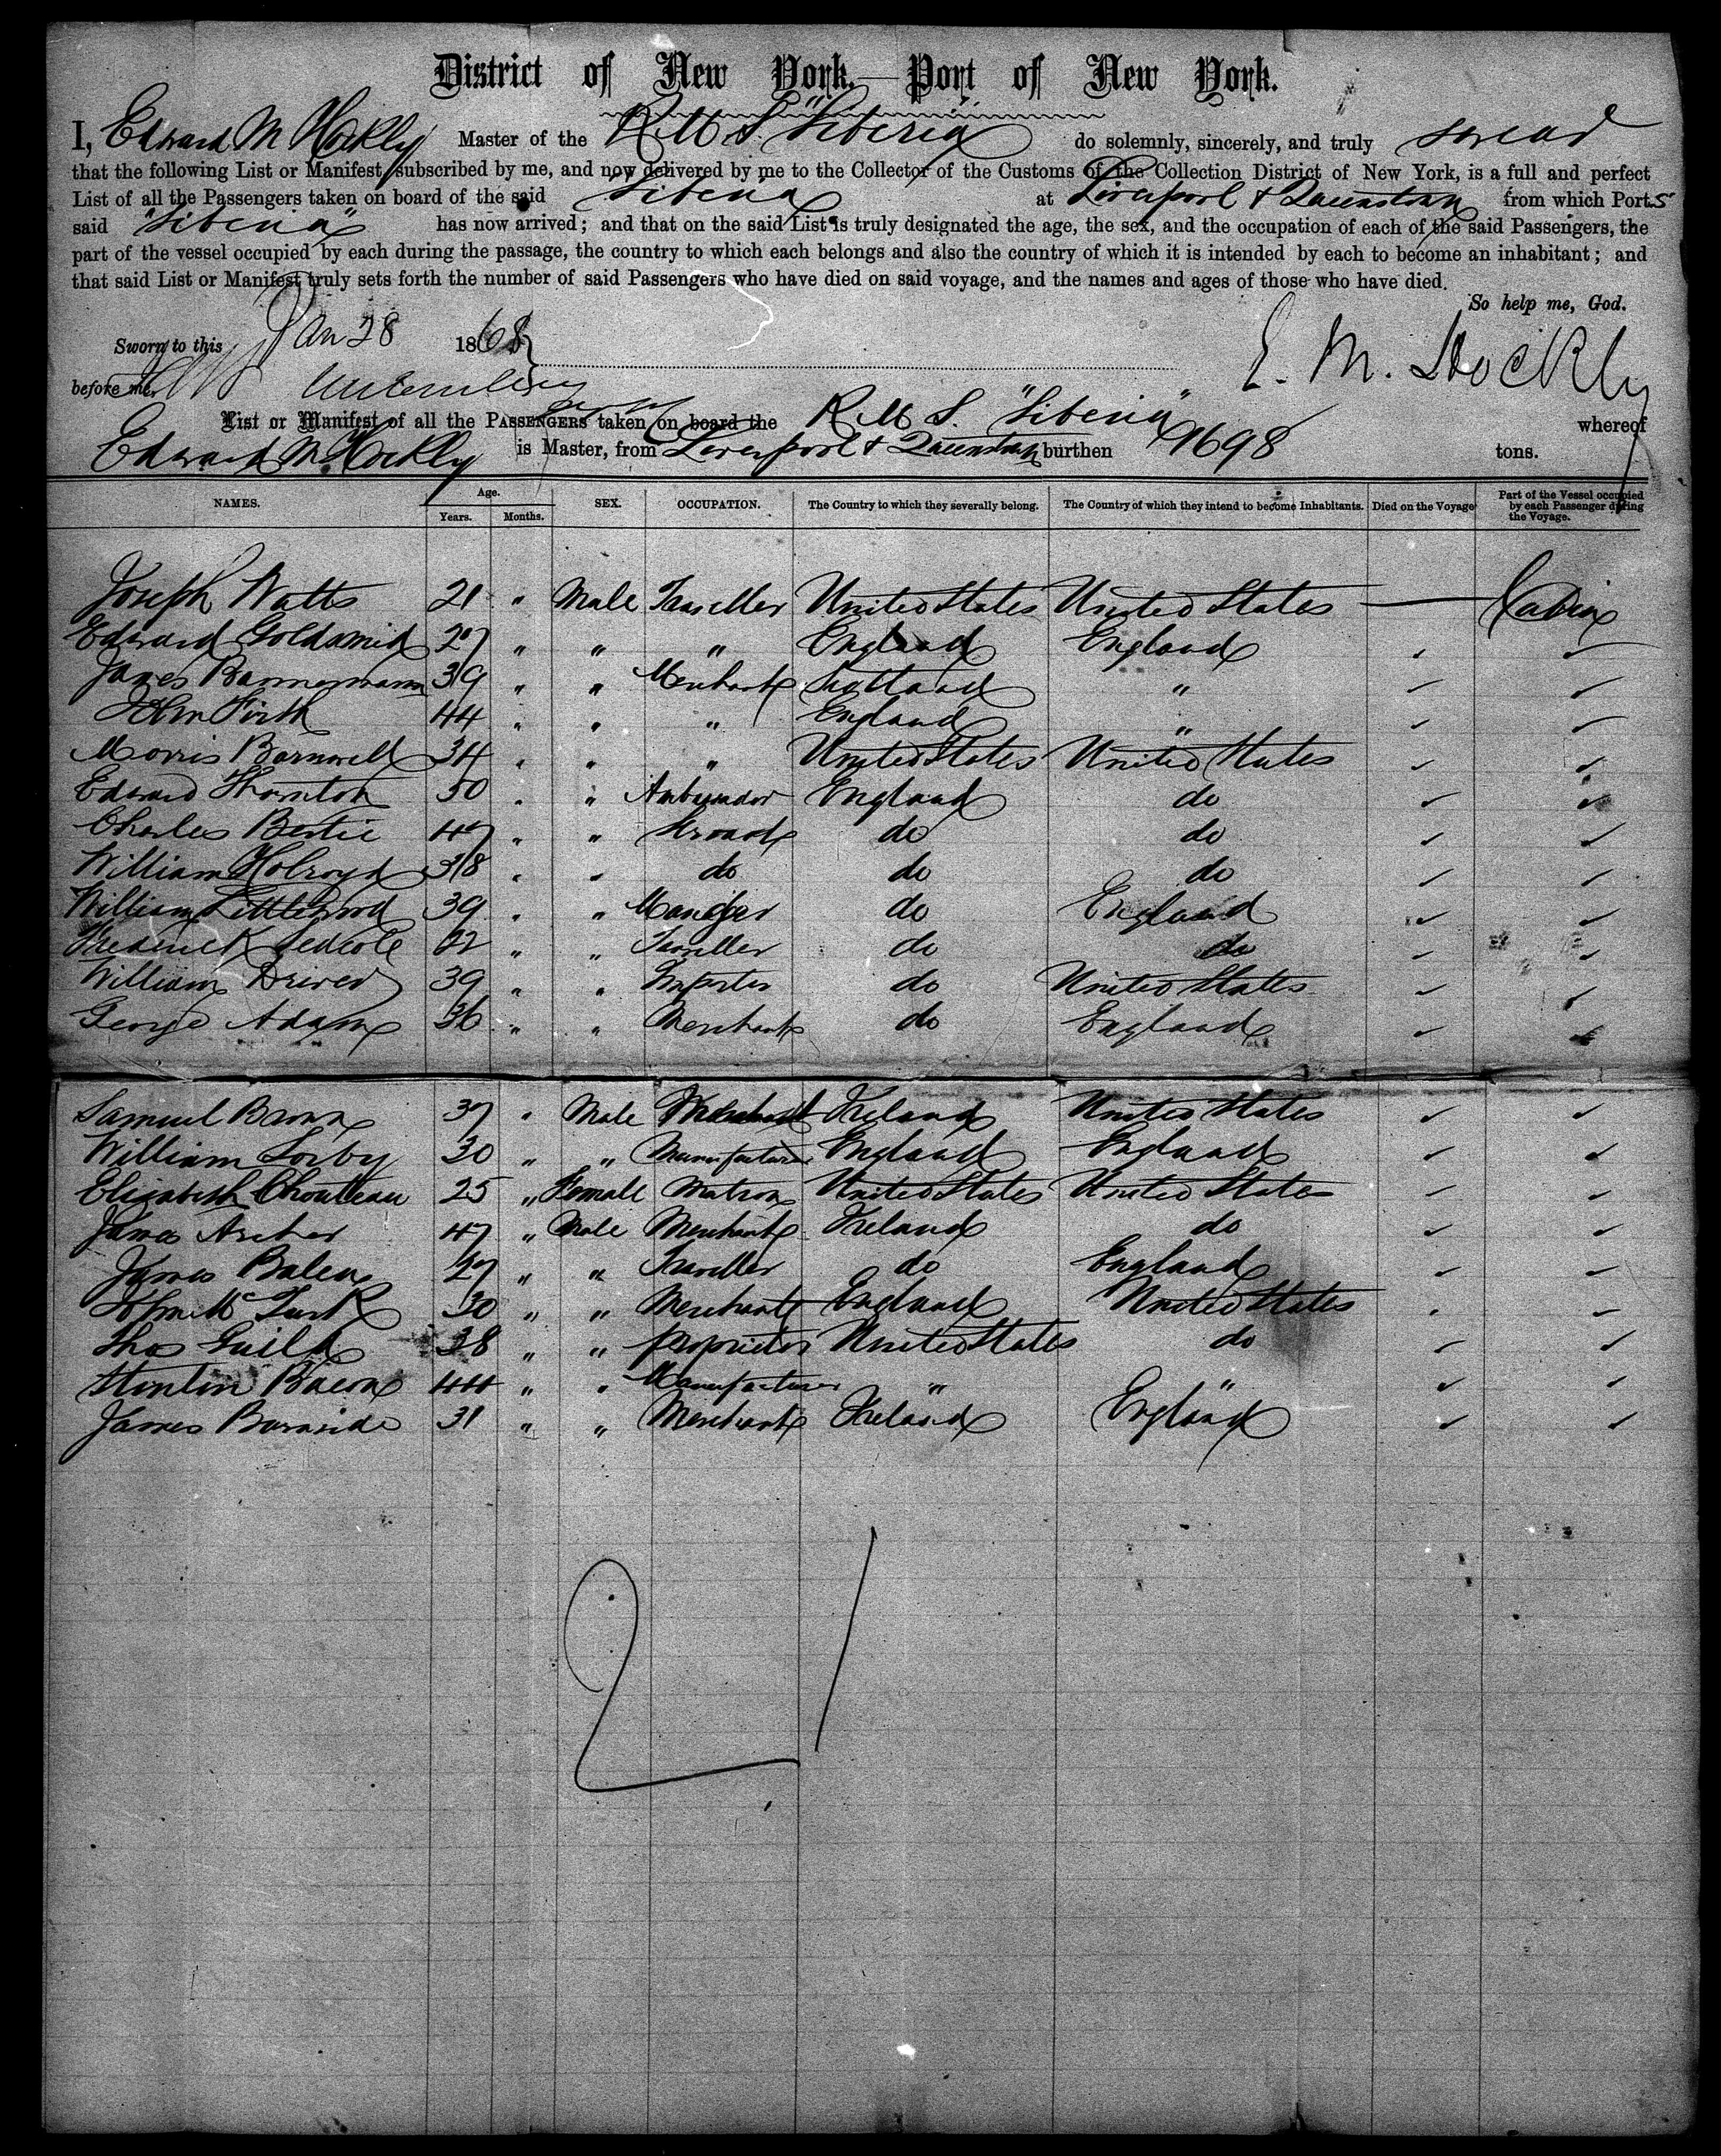 District of New York.—Port of New York.
I, Edward M Hockly Master of the R M S. "Siberia" do solemnly, sincerely, and truly swear
that the following List or Manifest, subscribed by me, and now delivered by me to the Collector of the Customs of the Collection District of New York, is a full and perfect
List of all the Passengers taken on board of the said Siberia at Liverpool & Queenstown from which Ports
said "Siberia" has now arrived; and that on the said List is truly designated the age, the sex, and the occupation of each of the said Passengers, the
part of the vessel occupied by each during the passage, the country to which each belongs and also the country of which it is intended by each to become an inhabitant; and
that said List or Manifest truly sets forth the number of said Passengers who have died on said voyage, and the names and ages of those who have died.
So help me, God.
Sworn to this Jan 28 1868
before me, E. M. Hockly
List or Manifest of all the PASSENGERS taken on board the R M S. "Siberia" whereof
Edward M. Hockly is Master, from Liverpool & Queenstown burthen 1698 tons.
NAMES. Age. Years. Months. SEX. OCCUPATION. The Country to which they severally belong. The Country of which they intend to become Inhabitants. Died on the Voyage Part of the Vessel occupied by each Passenger during the Voyage.
Joseph Watts 21 " Male Traveller United States United States — Cabin
Edward Goldsmid 27 " " " England England ✓ ✓
James Bannermann 39 " " Merchant Scotland " ✓ ✓
John Firth 44 " " " England " ✓ ✓
Morris Barnwell 34 " " " United States United States ✓ ✓
Edward Thornton 50 " " Ambassador England do ✓ ✓
Charles Bertie 47 " " do do ✓ ✓
William Holroyd 38 " " do do do ✓ ✓
William Littlewood 39 " " Manager do England ✓ ✓
Frederick 22 " " Traveller do do ✓ ✓
William Driver 39 " " Importer do United States ✓ ✓
George Adam 36 " " Merchant do England ✓ ✓
Samuel Brown 37 " Male Merchant Ireland United States ✓ ✓
William Sorby 30 " " Manufacturer England England ✓ ✓
Elizabeth Chouteau 25 " Female Matron United States United States ✓ ✓
James Archer 47 " Male Merchant Ireland do ✓ ✓
James Balen 27 " " Traveller do England ✓ ✓
John McTurk 30 " " Merchant England United States ✓ ✓
Thos Guild 38 " " proprietor United States do ✓ ✓
Stinton Bacon 44 " " Manufacturer " " ✓ ✓
James Burnside 31 " " Merchant Ireland England ✓ ✓
21